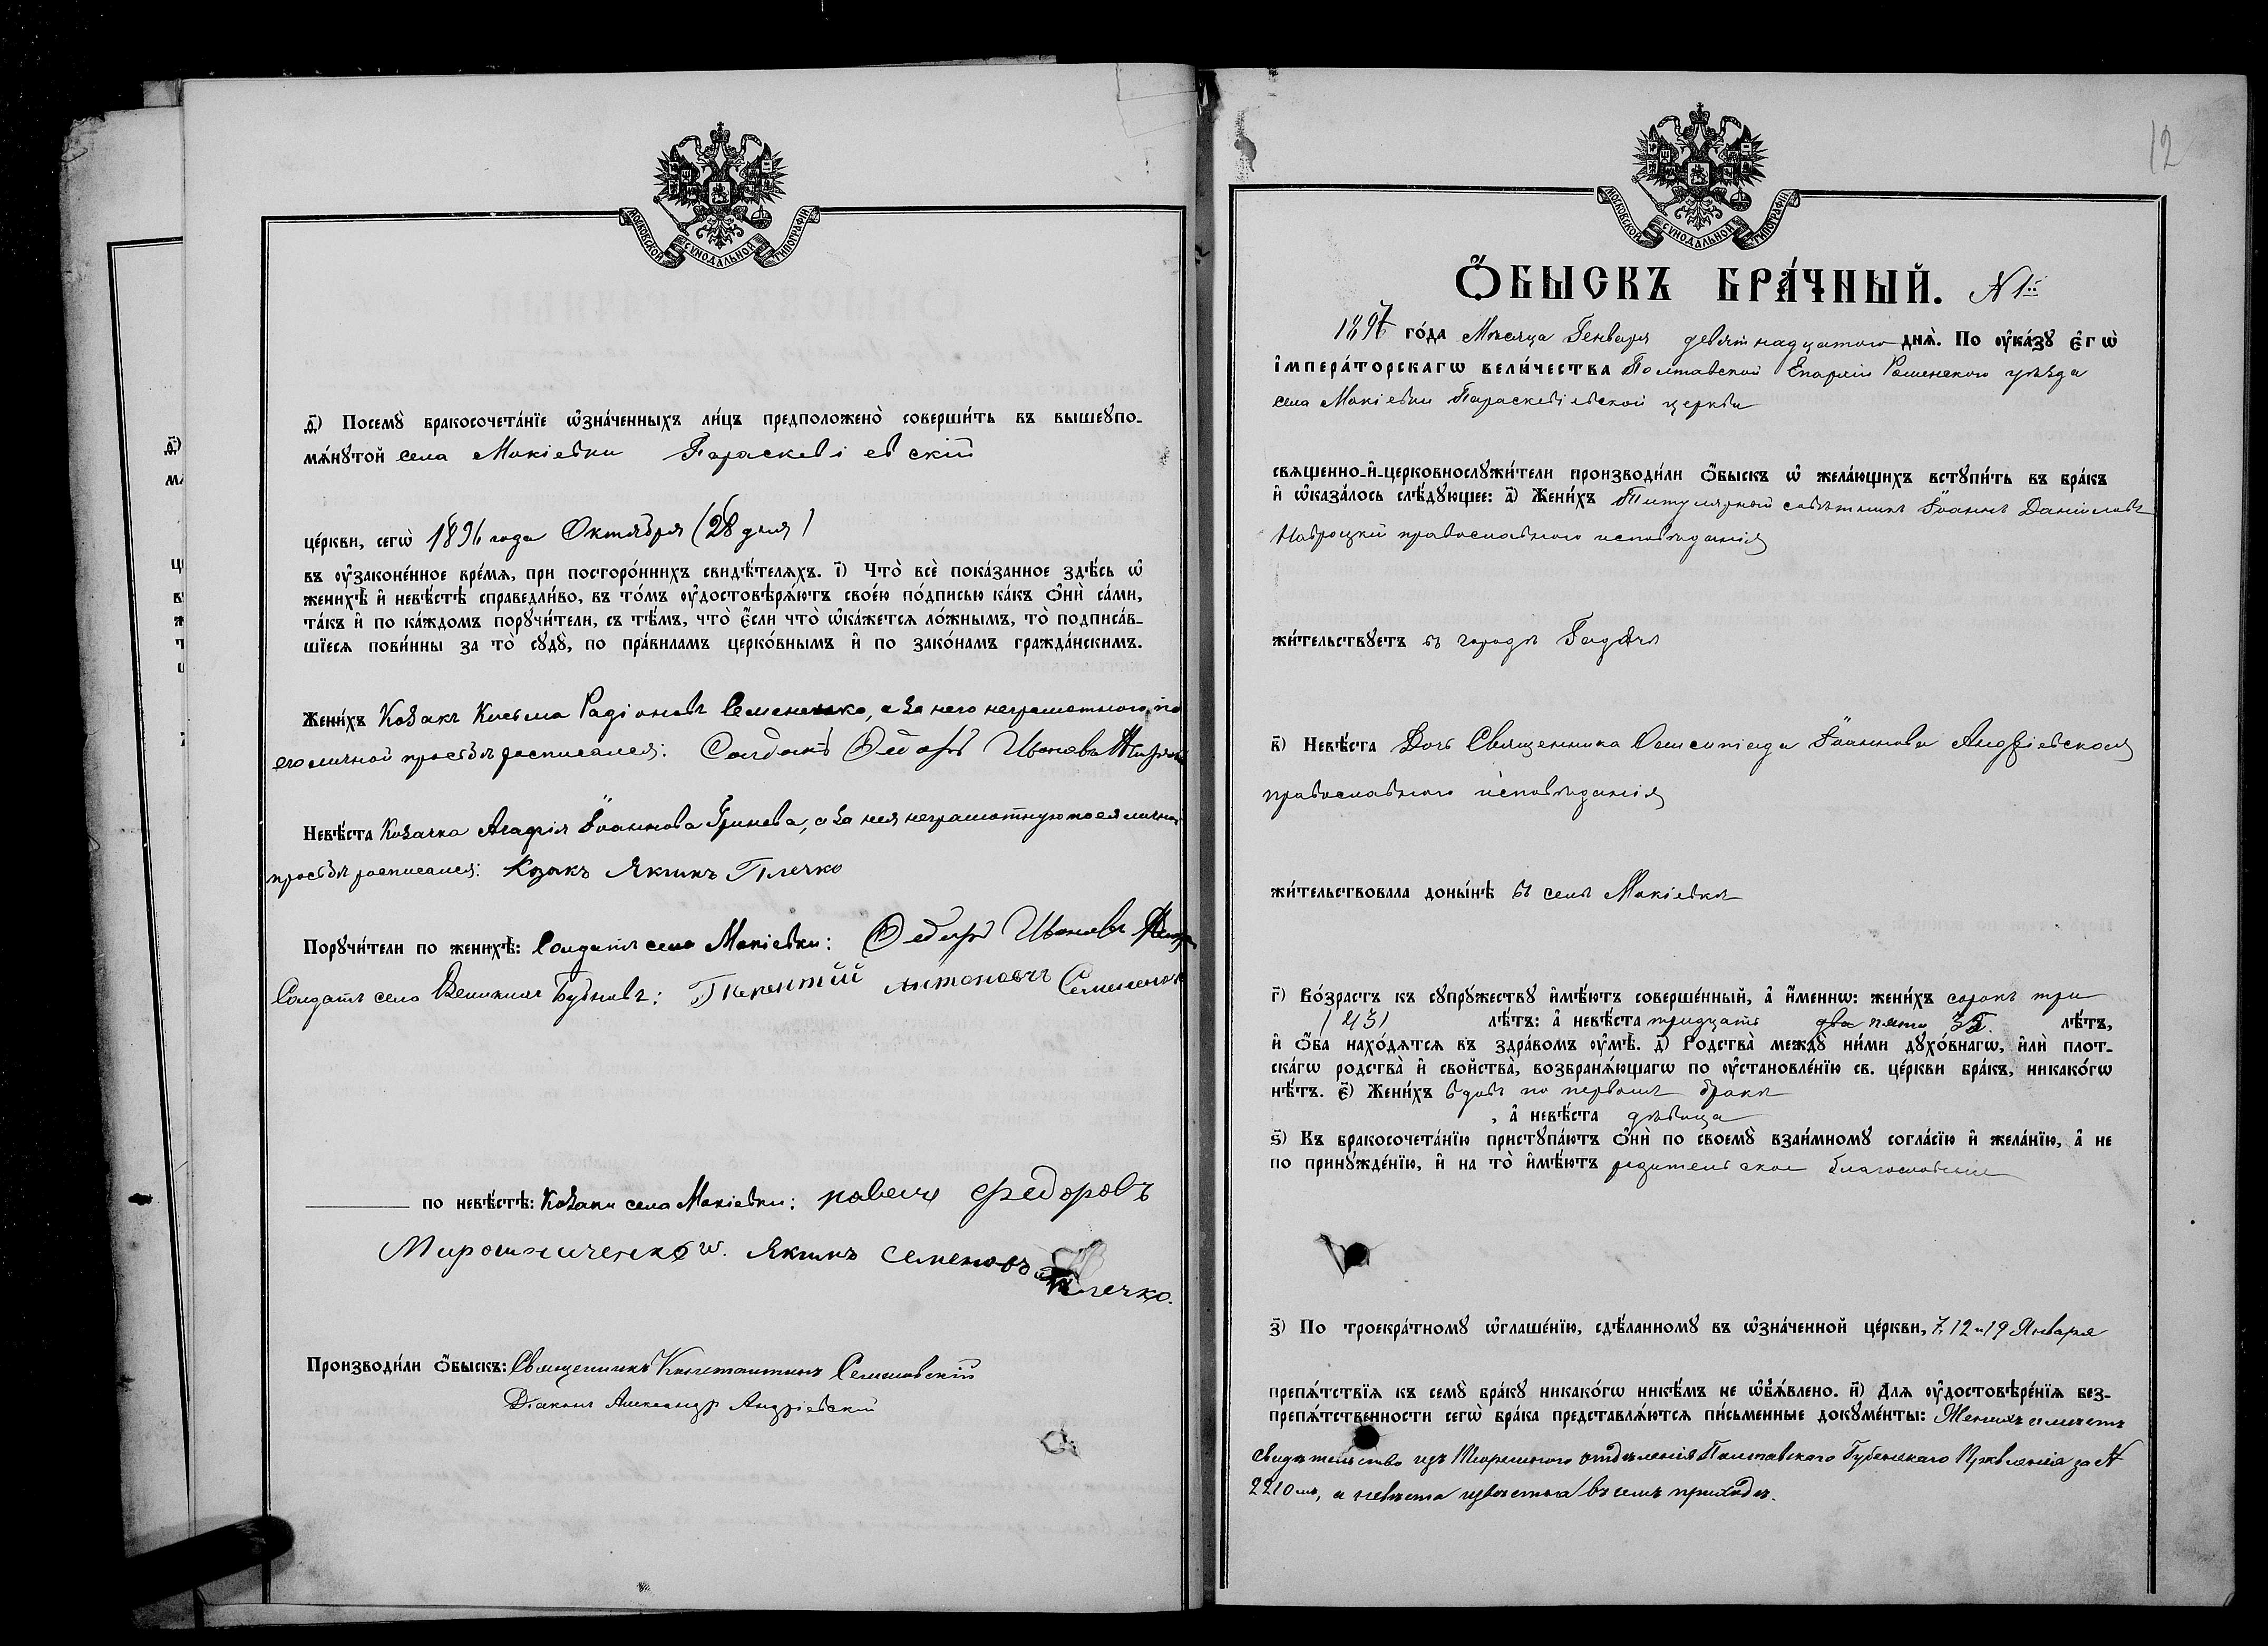 МОСКОВСКОЙ СѴНОДАЛЬНОЙ ТИПОГРАФІИ
д҃) Посемꙋ̀ бракосочета́нїе ѡ҆зна́ченныхъ ли́цъ предположено̀ соверши́ть въ вышеꙋпо-
мѧ́нꙋтой села Макіевки Параскевіевскій
це́ркви, сегѡ̀ 1896 года Октября (28 дня)
въ ᲂу҆законе́нное вре́мѧ, при посторо́ннихъ свидѣ́телѧхъ. і҃) Что̀ всѐ пока́занное здѣ́сь ѡ҆
женихѣ̀ и҆ невѣ́стѣ справедли́во, въ то́мъ ᲂу҆достовѣрѧ́ютъ свое́ю по́дписью ка́къ ѻ҆нѝ са́ми,
та́къ и҆ по ка́ждомъ порꙋчи́тели, съ тѣ́мъ, что̀ є҆́сли что̀ ѡ҆ка́жетсѧ ло́жнымъ, то̀ подписа́в-
шїесѧ пови́нны за то̀ сꙋдꙋ̀, по пра́виламъ церко́внымъ и҆ по зако́намъ гражда́нскимъ.
Жени́хъ Козакъ Косьма Радіоновъ Семененко, а за него неграмотного по
его личной просьбѣ росписался: Солдатъ Федоръ Ивановъ
Невѣ́ста Козачка Агафія Іоаннова Гринева, а за нея неграмотную по ея личной
просьбѣ росписался: Козакъ Якимъ Плечко
Порꙋчи́тели по женихѣ̀: Солдатъ села Макіевки: Федоръ Ивановъ
Солдатъ села Великихъ Бубновъ: Терентій Антоновъ Семененко
по невѣ́стѣ: Козаки села Макіевки: павелъ федоровъ
Мирошниченковъ. Якимъ Семеновъ
Плечко.
Производи́ли ѻ҆́быскъ: Священникъ Константинъ
Діаконъ Александръ Андріевскій
12
МОСКОВСКОЙ СѴНОДАЛЬНОЙ ТИПОГРАФІИ
Ѻ҆́БЫСКЪ БРА́ЧНЫЙ. № 1й
1897 го́да Мѣсяца Генваря девятнадцатого днѧ̀. По ᲂу҆ка́зꙋ є҆гѡ̀
і҆мпера́торскагѡ вели́чества Полтавской Епархіи Роменского уѣзда
села Макіевки Параскевіевской церкви
свѧщенно-и҆-церковнослꙋжи́тели производи́ли ѻ҆́быскъ ѡ҆ жела́ющихъ встꙋпи́ть въ бра́къ
и҆ ѡ҆каза́лось слѣ́дꙋющее: а҃) Жени́хъ Титулярный совѣтникъ Іоаннъ Даніиловъ
Навроцкій православного исповѣданія
жи́тельствꙋетъ въ городѣ Гадячѣ
в҃) Невѣ́ста Дочь Священника Іоаннова Андріевская
православного исповѣданія
жи́тельствовала доны́нѣ въ селѣ Макіевкѣ
г҃) Во́зрастъ къ сꙋпрꙋ́жествꙋ и҆мѣ́ютъ соверше́нный, а҆ и҆́меннѡ: жени́хъ сорокъ три
(43) лѣ́тъ: а҆ невѣ́ста тридцать два пять 35. лѣ́тъ,
и҆ ѻ҆́ба нахо́дѧтсѧ въ здра́вомъ ᲂу҆мѣ̀. д҃) Родства̀ междꙋ̀ ни́ми дꙋхо́внагѡ, и҆лѝ плот-
ска́гѡ родства̀ и҆ свойства̀, возбранѧ́ющагѡ по ᲂу҆становле́нїю св. це́ркви бра́къ, никако́гѡ
нѣ́тъ. є҃) Жени́хъ вдовъ по первомъ бракѣ
, а҆ невѣ́ста дѣвица
ѕ҃) Къ бракосочета́нїю пристꙋпа́ютъ ѻ҆нѝ по своемꙋ̀ взаи́мномꙋ согла́сїю и҆ жела́нїю, а҆ не
по принꙋжде́нїю, и҆ на то̀ и҆мѣ́ютъ родительское благословеніе
з҃) По троекра́тномꙋ ѡ҆глаше́нїю, сдѣ́ланномꙋ въ ѡ҆зна́ченной це́ркви, 7, 12 и 19 Января
препѧ́тствїѧ къ семꙋ̀ бра́кꙋ никако́гѡ никѣ́мъ не ѡ҆б̾ѧ́влено. и҃) Длѧ ᲂу҆достовѣре́нїѧ без-
препѧ́тственности сегѡ̀ бра́ка представлѧ́ютсѧ пи́сьменные докꙋме́нты: Женихъ имѣетъ
свидѣтельство изъ Тюремного отдѣленія Полтавского Губернского Правленія за №
2210мъ, а невѣста извѣстна въ семъ приходѣ.